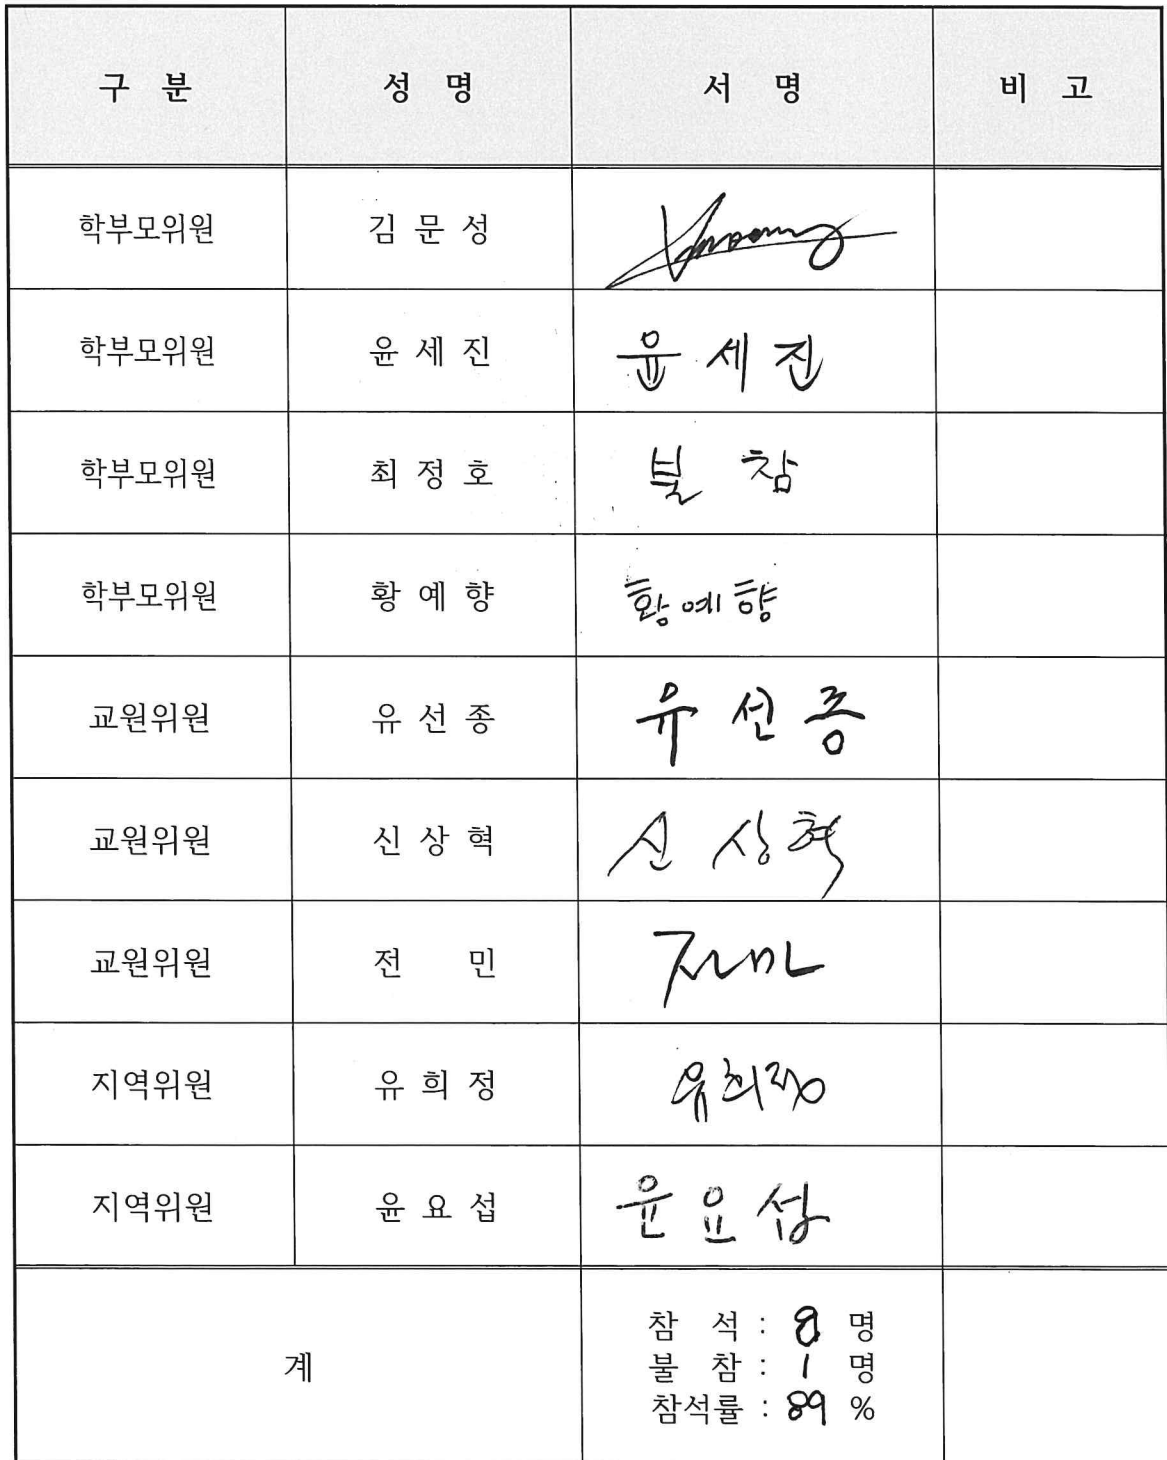 구 분 성 명 서 명 비 고
학부모위원 김 문 성
학부모위원 윤 세 진 윤 세 진
학부모위원 최 정 호 불 참
학부모위원 황 예 향 황 예 향
교원위원 유 선 종 유 선 종
교원위원 신 상 혁 신 상 혁
교원위원 전 민 전민
지역위원 유 희 정 유희정
지역위원 윤 요 섭 윤 요 섭
계
참 석 : 8 명
불 참 : 1 명
참석률 : 89 %